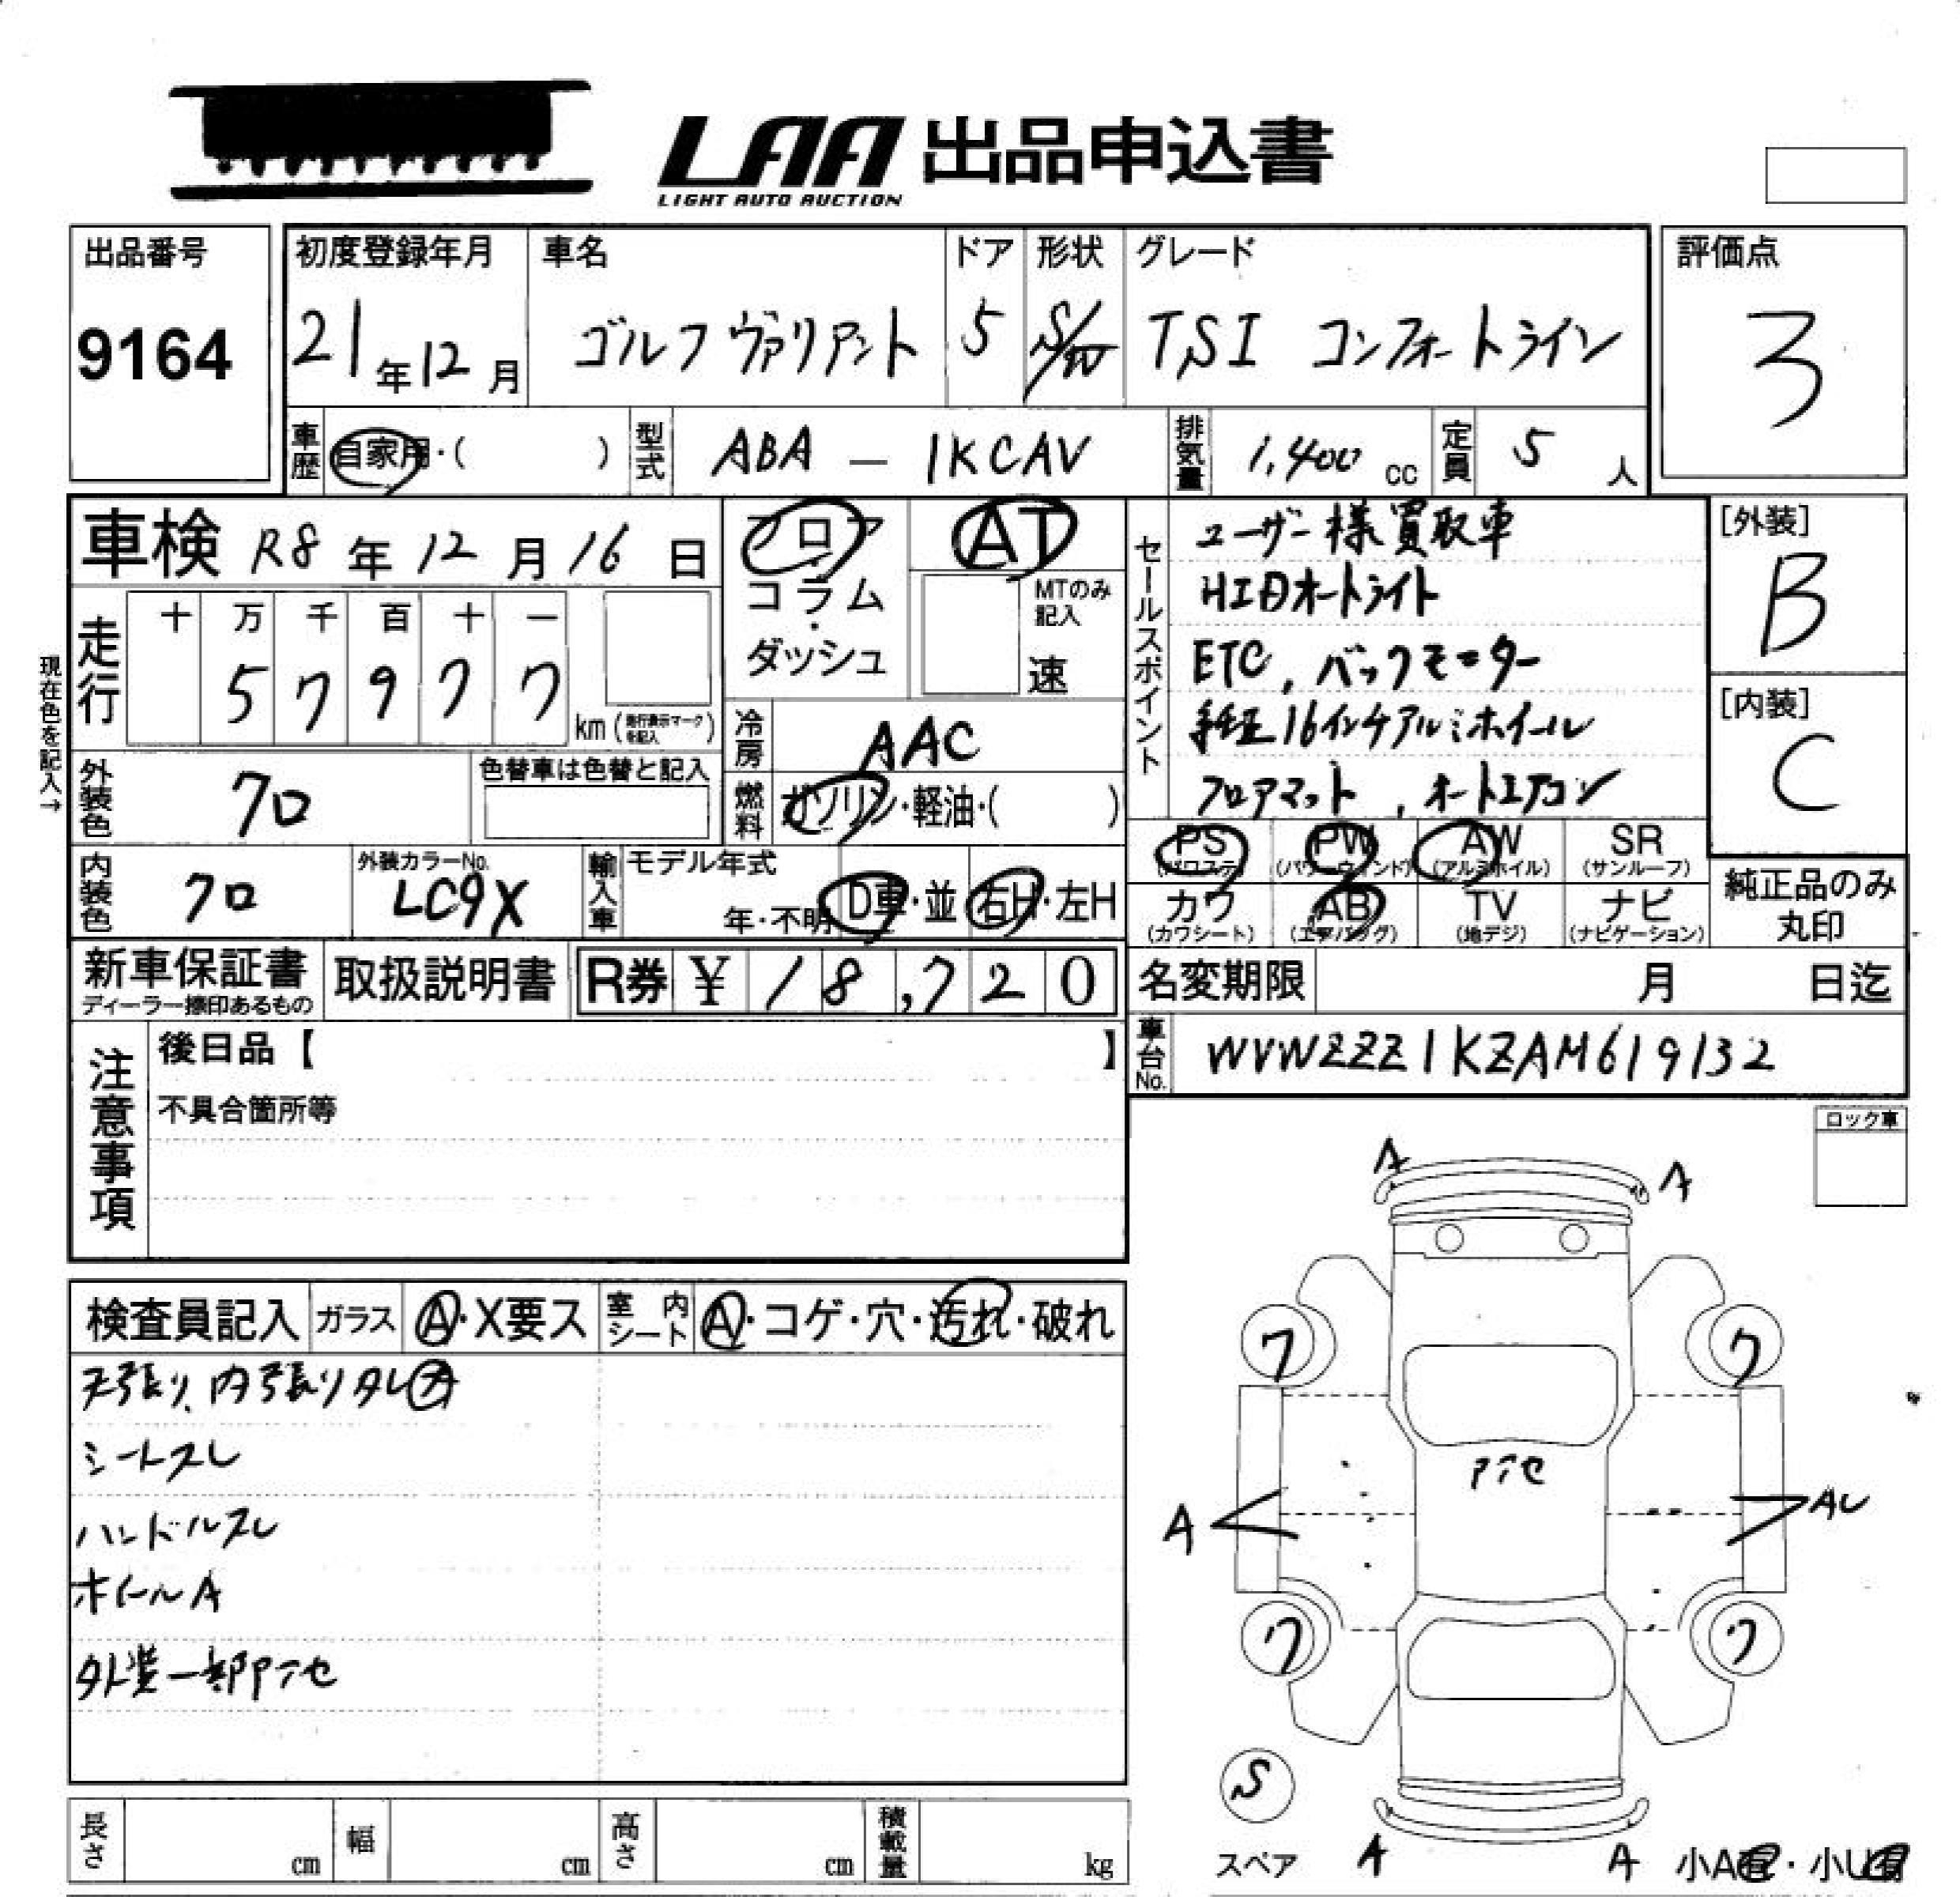 LAA 出品申込書
LIGHT AUTO AUCTION
出品番号
9164
初度登録年月
21年12月
車名
ゴルフ ヴァリアント
ドア
5
形状
S/W
グレード
TSI コンフォートライン
評価点
3
車歴
自家用・( )
型式
ABA - 1KCAV
排気量
1,400 cc
定員
5 人
車検 R8 年 12 月 16 日
フロア
コラム
・
ダッシュ
AT
MTのみ
記入
速
セールスポイント
ユーザー様買取車
HIDオートライト
ETC, バックモニター
純正16インチアルミホイール
フロアマット, オートエアコン
[外装]
B
[内装]
C
現在色を記入→
走行
十 万 千 百 十 一
5 7 9 7 7
km (走行表示マークを記入)
冷房
AAC
燃料
ガソリン・軽油・( )
外装色
クロ
色替車は色替と記入
内装色
クロ
外装カラーNo.
LC9X
輸入車
モデル年式
年・不明
D車・並
右H・左H
PS
(パワステ)
PW
(パワーウィンド)
AW
(アルミホイル)
SR
(サンルーフ)
カワ
(カワシート)
AB
(エアバッグ)
TV
(地デジ)
ナビ
(ナビゲーション)
純正品のみ
丸印
新車保証書
ディーラー捺印あるもの
取扱説明書
R券 ¥ 18,720
名変期限 月 日迄
車台No.
WVWZZZ1KZAM619132
注意事項
後日品【 】
不具合箇所等
ロック車
検査員記入
ガラス
A・X要ス
室内シート
A・コゲ・穴・汚れ・破れ
天張り、内張りタレ大
シートスレ
ハンドルスレ
ホイールA
外装一部アセ
A
A
7
7
アセ
A
AU
7
7
S
スペア
A
A
小A有・小U有
長さ cm
幅 cm
高さ cm
積載量 kg